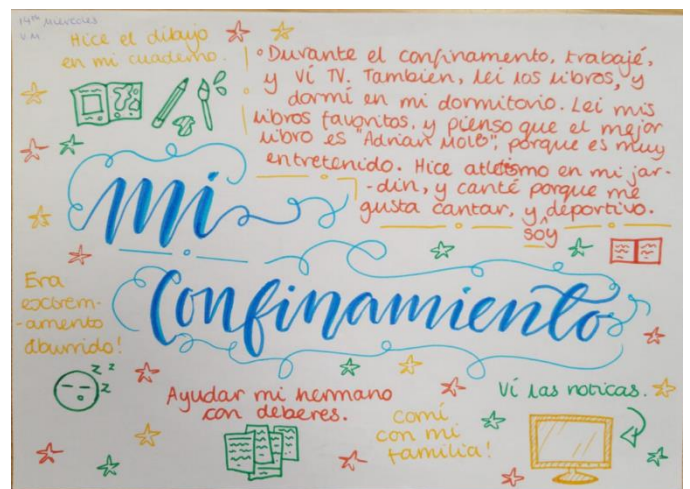 14th Miércoles
V.M.
Hice el dibujo
en mi cuaderno.
• Durante el confinamento, trabajé,
y ví TV. Tambien, leí los libros, y
dormí en mi dormitorio. Leí mis
libros favoritos, y pienso que el mejor
libro es "Adrian Mole", porque es muy
entretenido. Hice atletismo en mi jar-
-dín, y canté porque me
gusta cantar, y deportivo.
soy
mi
Confinamiento
Era
extrem-
-amento
aburrido!
z z z
Ayudar mi hermano
con deberes.
comí
con mi
familia!
Ví las noticas.